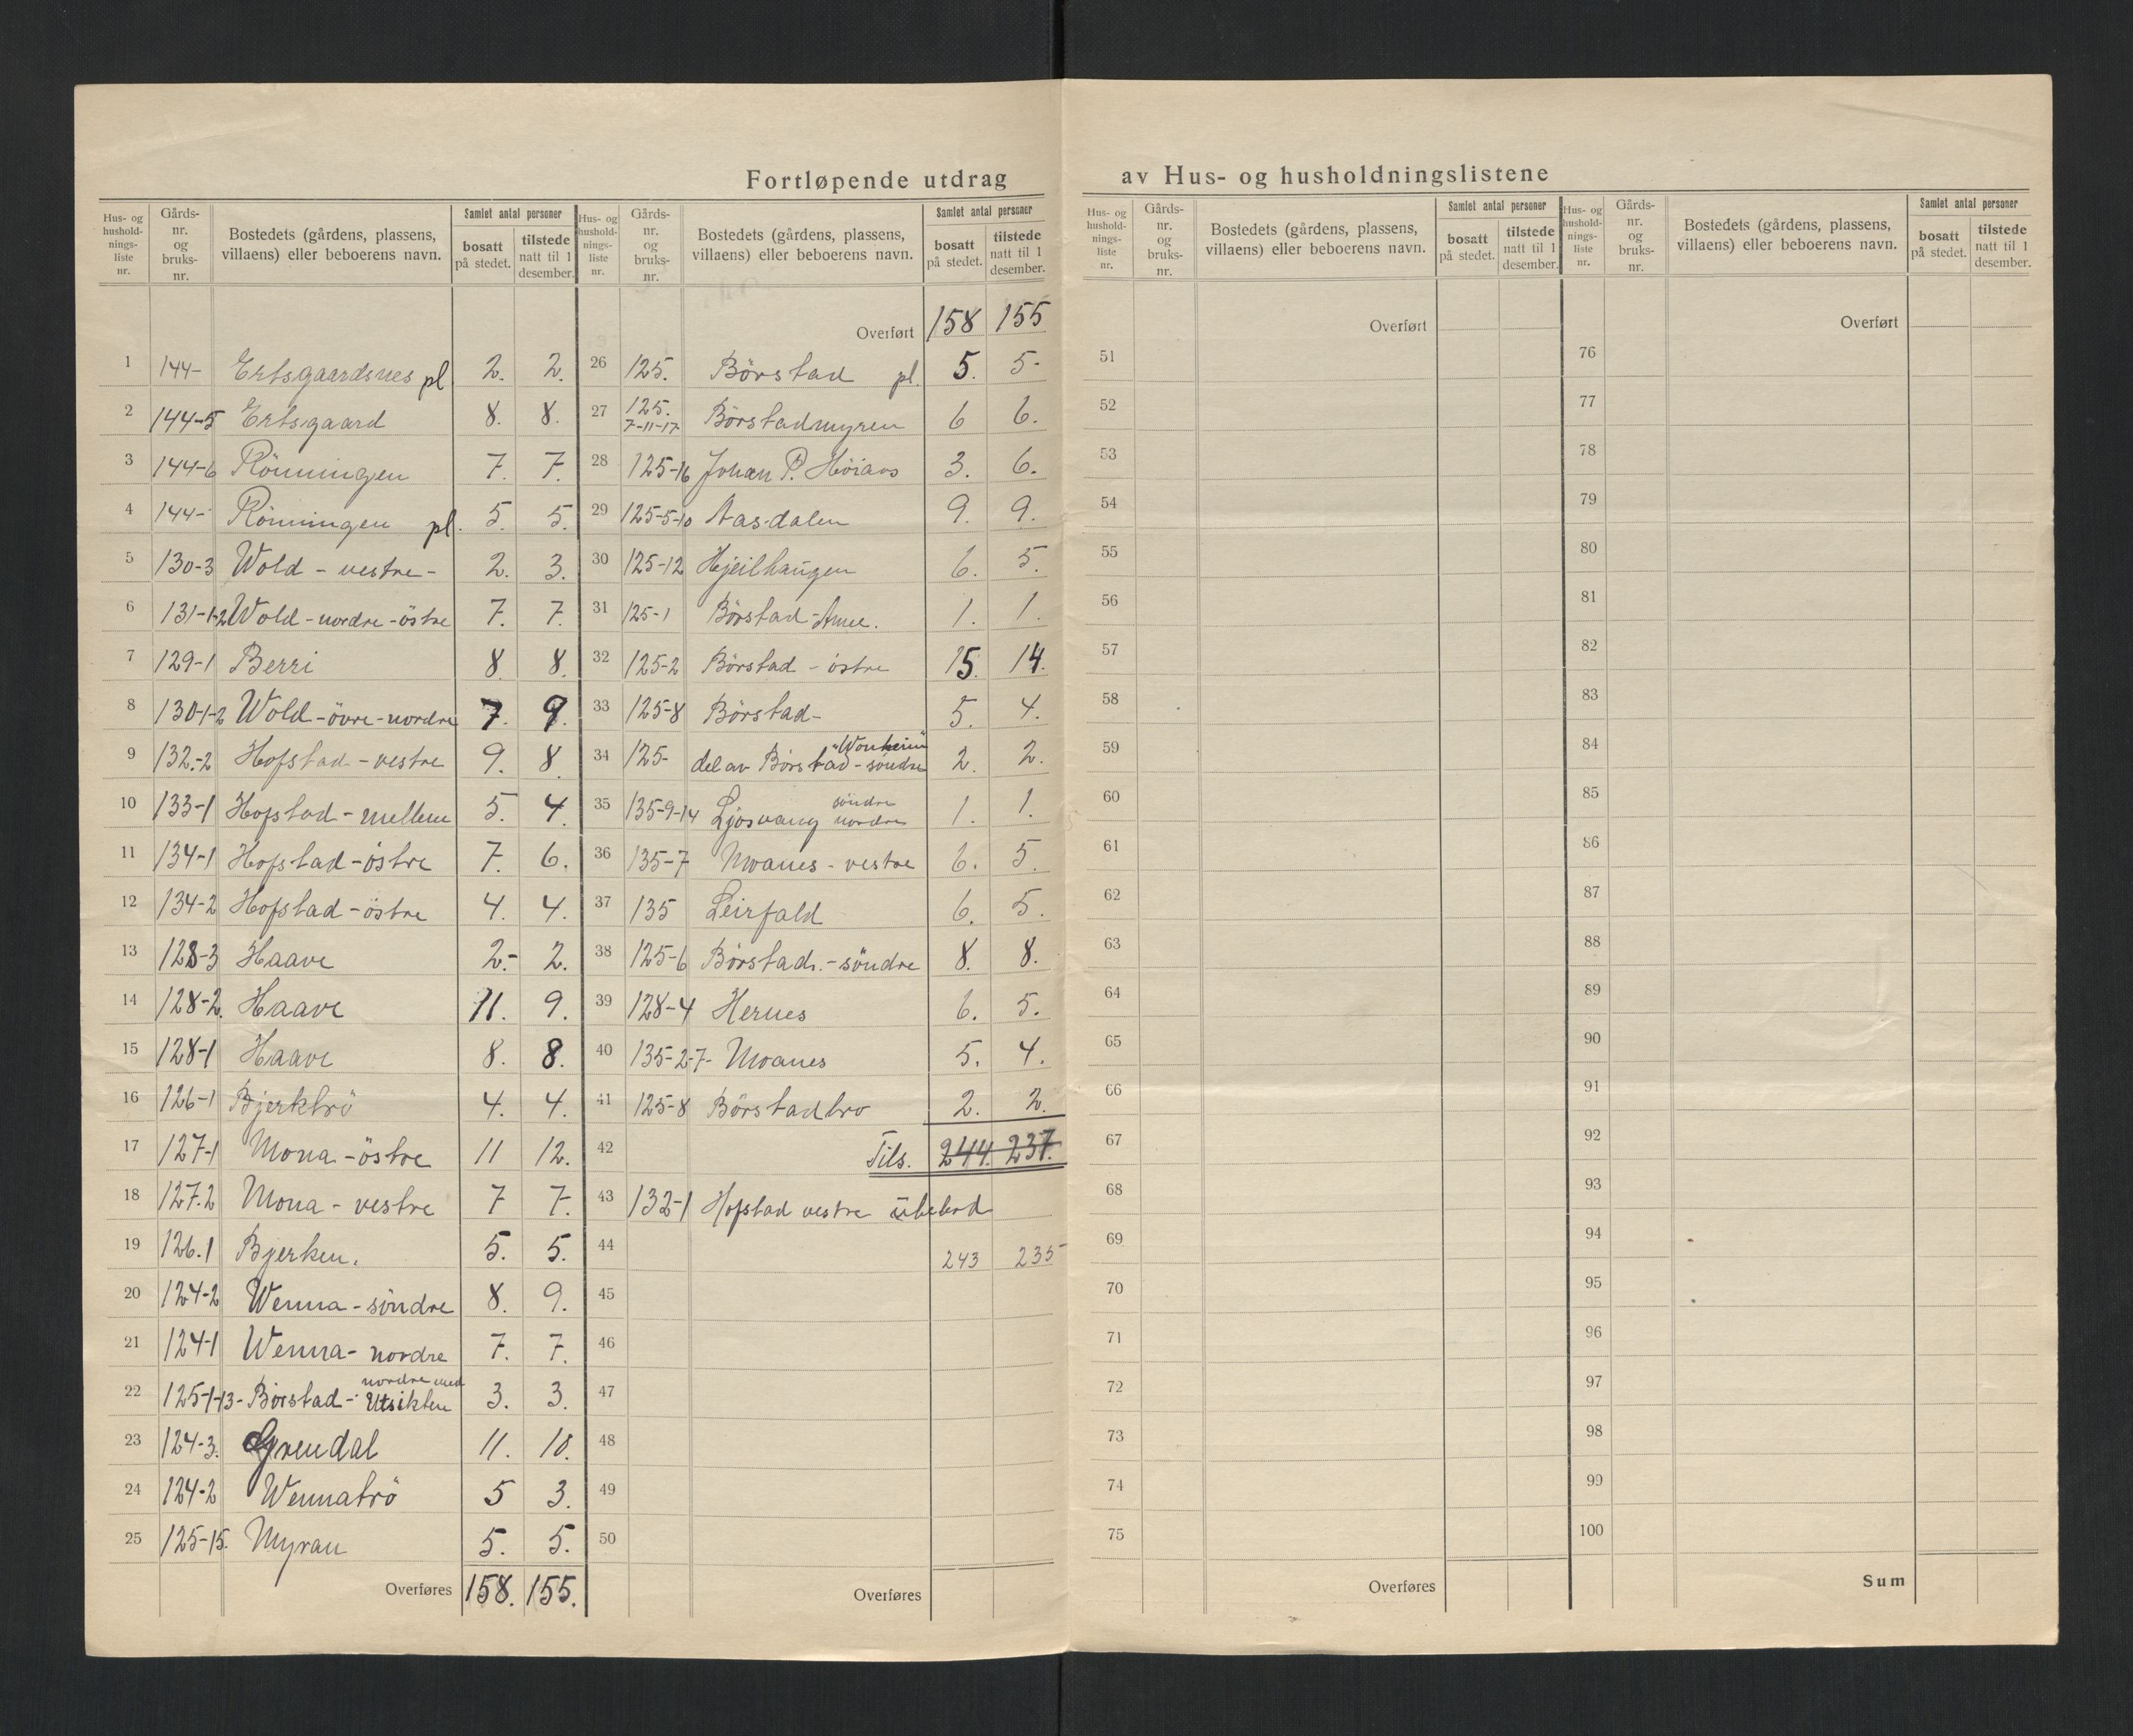 Fortløpende utdrag av Hus- og husholdningslistene
Hus- og hushold-nings-liste nr. Gårds-nr. og bruks-nr. Bostedets (gårdens, plassens, villaens) eller beboerens navn. Samlet antal personer bosatt på stedet. tilstede natt til 1 desember.
1 144- Ertsgaardsnes pl 2. 2.
2 144-5 Ertsgaard 8. 8.
3 144-6 Rönningen 7. 7.
4 144- Rönningen pl. 5. 5.
5 130-3 Wold - vestre - 2. 3.
6 131-1-2 Wold - nordre - östre 7. 7.
7 129-1 Berri 8. 8.
8 130-1-2 Wold - övre - nordre 7. 9.
9 132.-2 Hofstad - vestre 9. 8.
10 133-1 Hofstad - mellem 5. 4.
11 134-1 Hofstad - östre 7. 6.
12 134-2 Hofstad - östre 4. 4.
13 128-3 Haave 2.- 2.
14 128-2. Haave 11. 9.
15 128-1 Haave 8. 8.
16 126-1 Bjerktrö 4. 4.
17 127-1 Mona - östre 11 12.
18 127.2 Mona - vestre 7 7.
19 126.1 Bjerken. 5. 5.
20 124-2 Wenna - söndre 8. 9.
21 124-1 Wenna - nordre 7. 7.
22 125-1-13- Börstad - nordre med Utsikten 3. 3.
23 124-3. Grendal 11. 10.
24 124-2 Wennatrö 5 3.
25 125-15. Myran 5. 5.
Overføres 158. 155.
Hus- og hushold-nings-liste nr. Gårds-nr. og bruks-nr. Bostedets (gårdens, plassens, villaens) eller beboerens navn. Samlet antal personer bosatt på stedet. tilstede natt til 1 desember.
Overført 158 155
26 125. Börstad pl. 5. 5-
27 125. 7-11-17 Börstadmyren 6 6.
28 125-16 Johan P. Höiaas 3. 6.
29 125-5-10 Aasdalen 9. 9.
30 125-12 Hjeilhaugen 6. 5.
31 125-1 Börstad - 1. 1.
32 125-2 Börstad - östre 15. 14.
33 125-8 Börstad - 5. 4.
34 125- del av Börstad - söndre "Wonheim" 2. 2.
35 135-9-14 Ljosvang söndre nordre 1. 1.
36 135-7 Moanes - vestre 6. 5.
37 135 Leirfald 6. 5.
38 125-6 Börstad. - söndre 8. 8.
39 128-4 Hernes 6. 5.
40 135-2-7- Moanes 5. 4.
41 125-8 Börstadbro 2. 2.
42 Tils. 244. 237.
43 132-1 Hofstad vestre ubebod
44 243 235
45
46
47
48
49
50
Overføres
Hus- og hushold-nings-liste nr. Gårds-nr. og bruks-nr. Bostedets (gårdens, plassens, villaens) eller beboerens navn. Samlet antal personer bosatt på stedet. tilstede natt til 1 desember.
Overført
51
52
53
54
55
56
57
58
59
60
61
62
63
64
65
66
67
68
69
70
71
72
73
74
75
Overføres
Hus- og hushold-nings-liste nr. Gårds-nr. og bruks-nr. Bostedets (gårdens, plassens, villaens) eller beboerens navn. Samlet antal personer bosatt på stedet. tilstede natt til 1 desember.
Overført
76
77
78
79
80
81
82
83
84
85
86
87
88
89
90
91
92
93
94
95
96
97
98
99
100
Sum